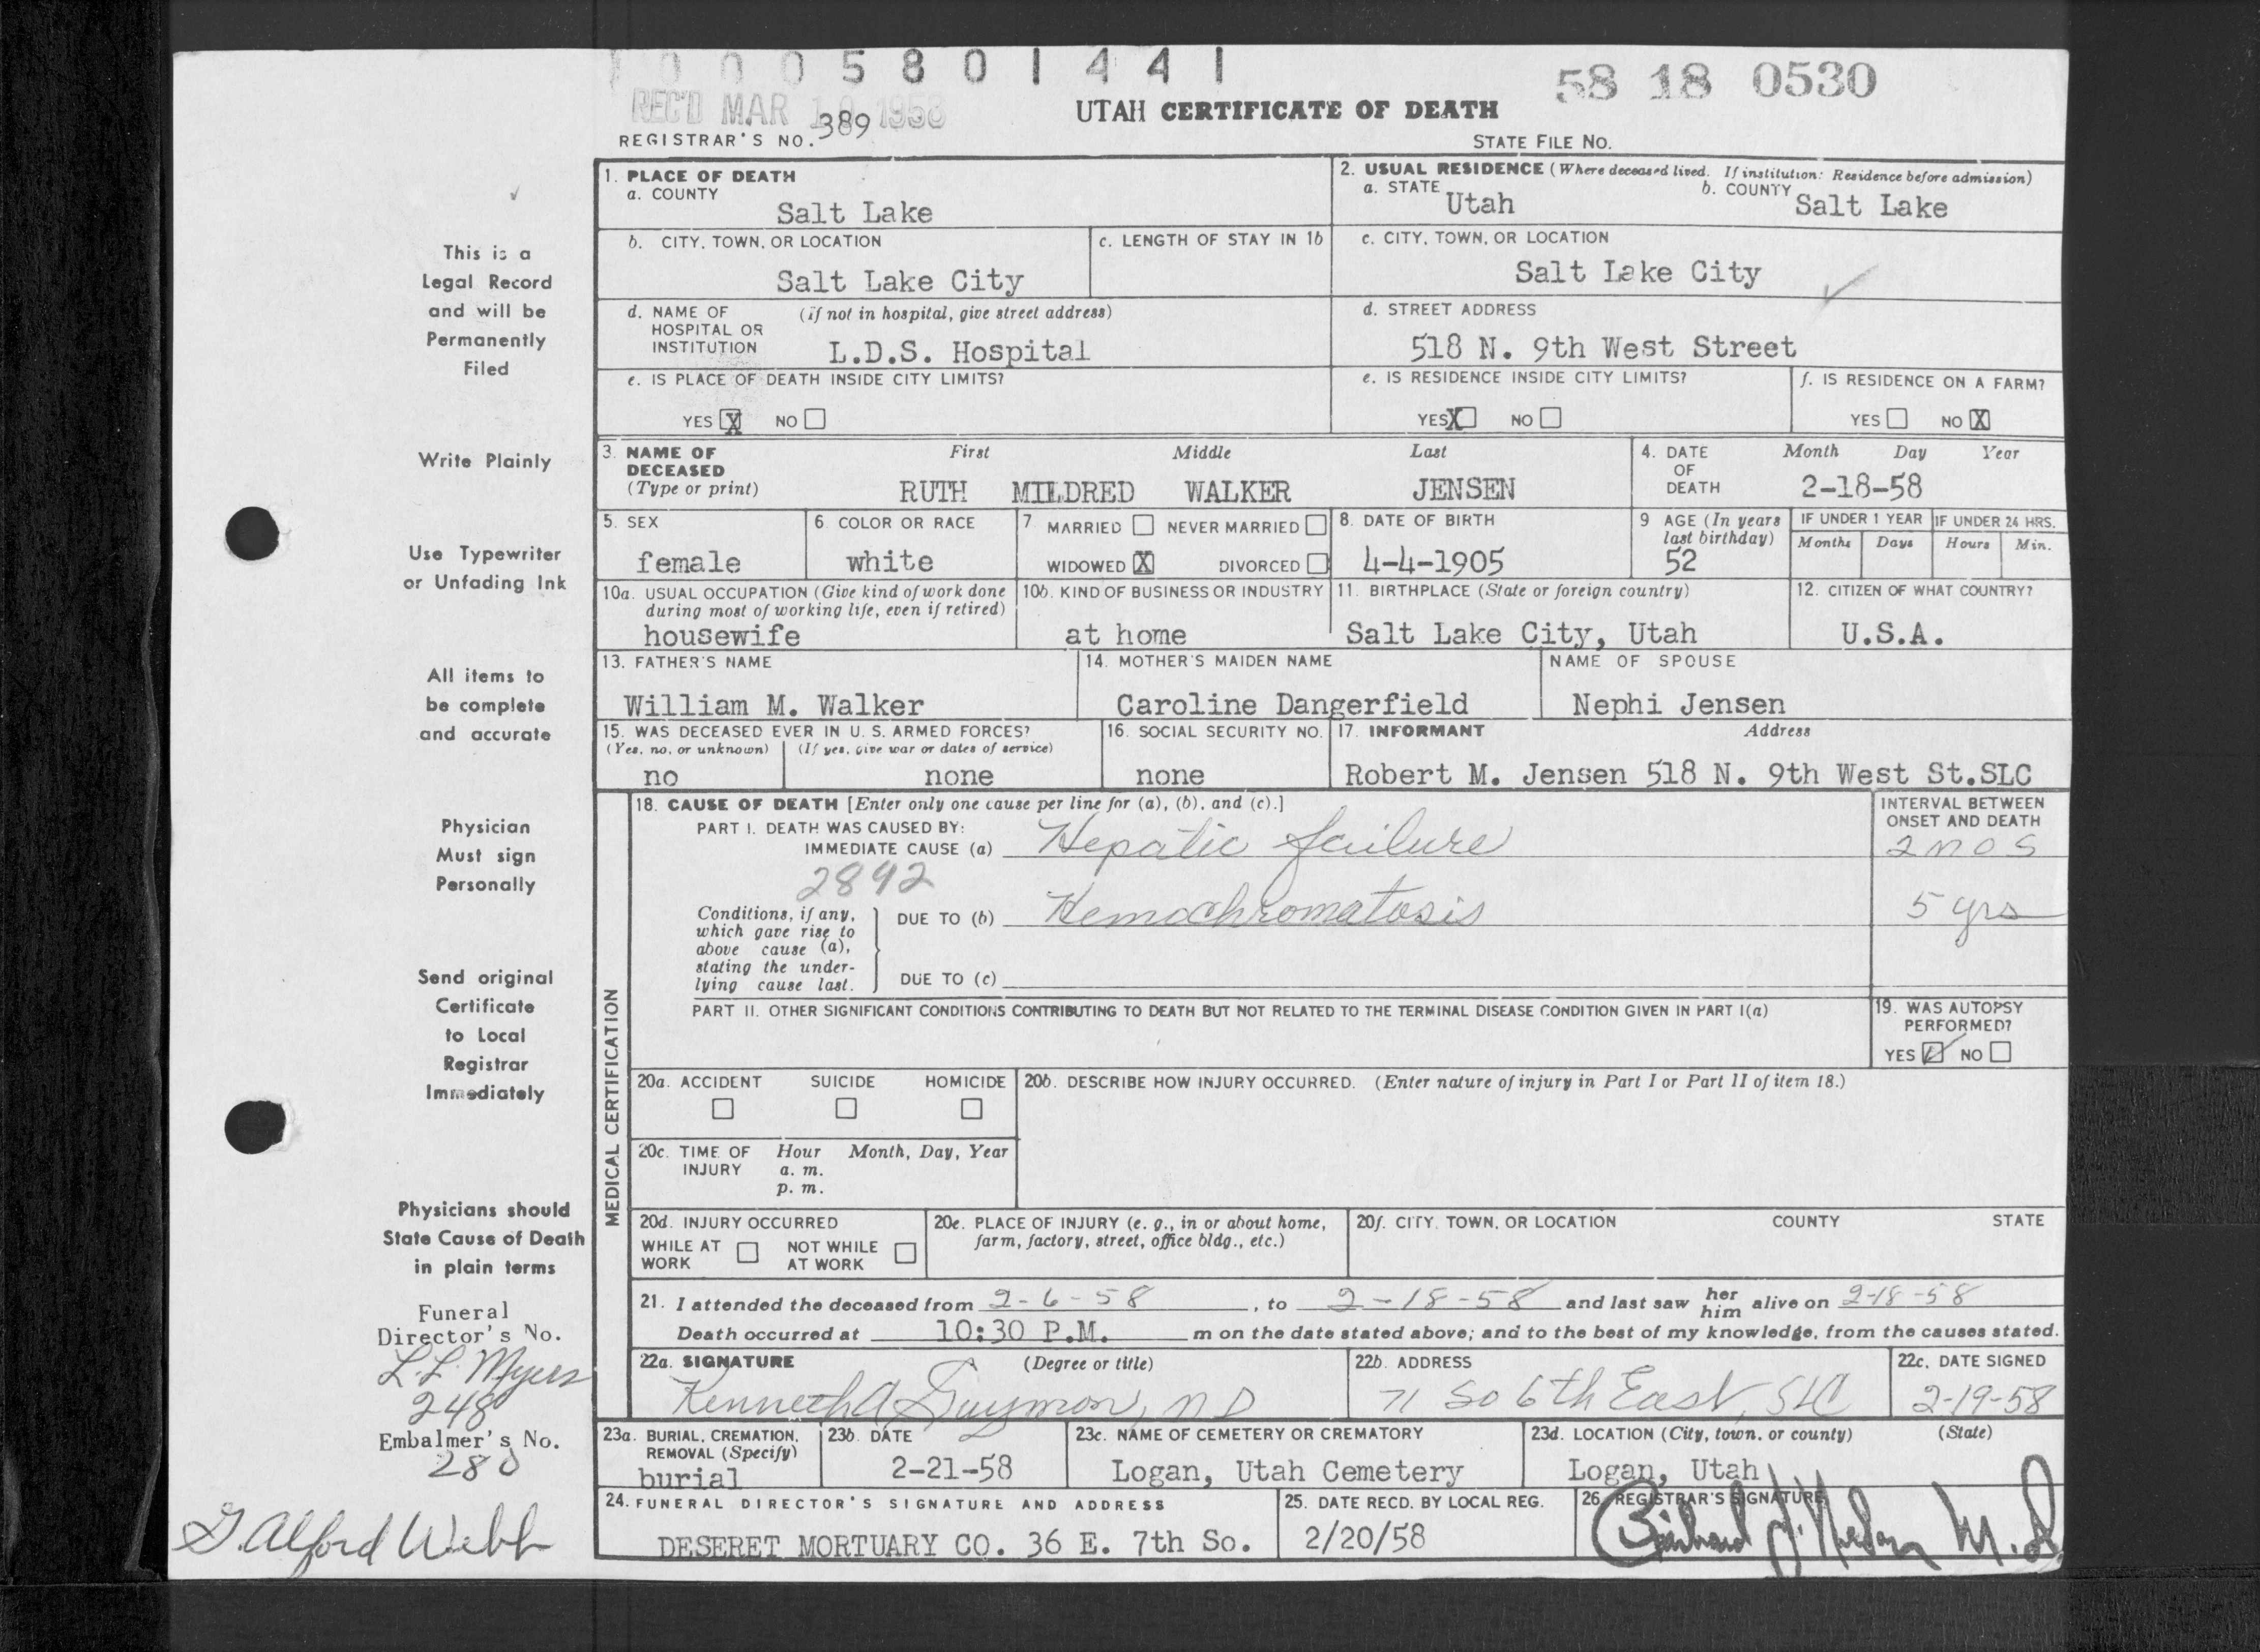 10005801441
REC'D MAR 10 1958
58 18 0530
UTAH CERTIFICATE OF DEATH
REGISTRAR'S NO. 389
STATE FILE NO.
1. PLACE OF DEATH
a. COUNTY
Salt Lake
2. USUAL RESIDENCE (Where deceased lived. If institution: Residence before admission)
a. STATE Utah b. COUNTY Salt Lake
b. CITY, TOWN, OR LOCATION
Salt Lake City
c. LENGTH OF STAY IN 1b
c. CITY, TOWN, OR LOCATION
Salt Lake City
d. NAME OF HOSPITAL OR INSTITUTION (if not in hospital, give street address)
L.D.S. Hospital
d. STREET ADDRESS
518 N. 9th West Street
e. IS PLACE OF DEATH INSIDE CITY LIMITS?
YES X NO
e. IS RESIDENCE INSIDE CITY LIMITS?
YES X NO
f. IS RESIDENCE ON A FARM?
YES NO X
3. NAME OF DECEASED (Type or print)
First Middle Last
RUTH MILDRED WALKER JENSEN
4. DATE OF DEATH Month Day Year
2-18-58
5. SEX
female
6. COLOR OR RACE
white
7. MARRIED NEVER MARRIED
WIDOWED X DIVORCED
8. DATE OF BIRTH
4-4-1905
9 AGE (In years last birthday)
52
IF UNDER 1 YEAR IF UNDER 24 HRS.
Months Days Hours Min.
10a. USUAL OCCUPATION (Give kind of work done during most of working life, even if retired)
housewife
10b. KIND OF BUSINESS OR INDUSTRY
at home
11. BIRTHPLACE (State or foreign country)
Salt Lake City, Utah
12. CITIZEN OF WHAT COUNTRY?
U.S.A.
13. FATHER'S NAME
William M. Walker
14. MOTHER'S MAIDEN NAME
Caroline Dangerfield
NAME OF SPOUSE
Nephi Jensen
15. WAS DECEASED EVER IN U. S. ARMED FORCES?
(Yes, no, or unknown) (If yes, give war or dates of service)
no none
16. SOCIAL SECURITY NO.
none
17. INFORMANT Address
Robert M. Jensen 518 N. 9th West St.SLC
MEDICAL CERTIFICATION
18. CAUSE OF DEATH [Enter only one cause per line for (a), (b), and (c).]
INTERVAL BETWEEN ONSET AND DEATH
PART I. DEATH WAS CAUSED BY:
IMMEDIATE CAUSE (a) Hepatic failure 2 mos
2892
Conditions, if any, which gave rise to above cause (a), stating the underlying cause last.
DUE TO (b) Hemochromatosis 5 yrs
DUE TO (c)
PART II. OTHER SIGNIFICANT CONDITIONS CONTRIBUTING TO DEATH BUT NOT RELATED TO THE TERMINAL DISEASE CONDITION GIVEN IN PART I(a)
19. WAS AUTOPSY PERFORMED?
YES ✓ NO
20a. ACCIDENT SUICIDE HOMICIDE
20b. DESCRIBE HOW INJURY OCCURRED. (Enter nature of injury in Part I or Part II of item 18.)
20c. TIME OF INJURY Hour Month, Day, Year
a. m.
p. m.
20d. INJURY OCCURRED
WHILE AT WORK NOT WHILE AT WORK
20e. PLACE OF INJURY (e. g., in or about home, farm, factory, street, office bldg., etc.)
20f. CITY, TOWN, OR LOCATION COUNTY STATE
21. I attended the deceased from 2-6-58, to 2-18-58 and last saw her him alive on 2-18-58
Death occurred at 10:30 P.M. m on the date stated above; and to the best of my knowledge, from the causes stated.
22a. SIGNATURE (Degree or title)
Kenneth A Guymon, MD
22b. ADDRESS
71 So 6th East, SLC
22c. DATE SIGNED
2-19-58
23a. BURIAL, CREMATION, REMOVAL (Specify)
burial
23b. DATE
2-21-58
23c. NAME OF CEMETERY OR CREMATORY
Logan, Utah Cemetery
23d. LOCATION (City, town, or county) (State)
Logan, Utah
24. FUNERAL DIRECTOR'S SIGNATURE AND ADDRESS
DESERET MORTUARY CO. 36 E. 7th So.
25. DATE RECD. BY LOCAL REG.
2/20/58
26. REGISTRAR'S SIGNATURE
M.D.
This is a
Legal Record
and will be
Permanently
Filed
Write Plainly
Use Typewriter
or Unfading Ink
All items to
be complete
and accurate
Physician
Must sign
Personally
Send original
Certificate
to Local
Registrar
Immediately
Physicians should
State Cause of Death
in plain terms
Funeral
Director's No.
L.L. Myers
248
Embalmer's No.
280
G. Alford Webb